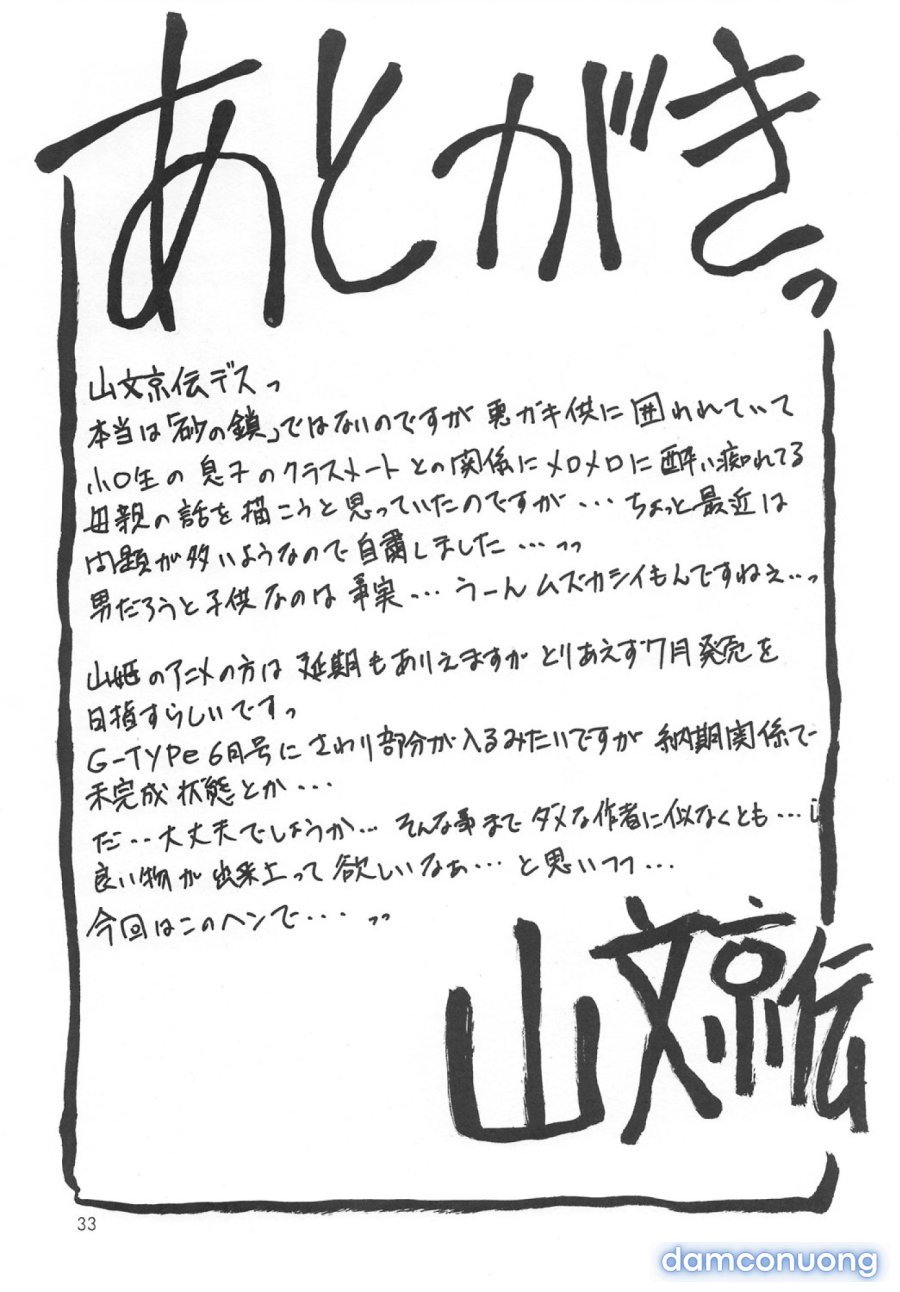 あとがきっ
山文京伝デスっ
本当は「砂の鎖」ではないのですが 悪ガキ供に囲われていて
小○生の息子のクラスメートとの関係にメロメロに酔い痴れてる
母親の話を描こうと思っていたのですが・・・ ちょっと最近は
問題が多いようなので自粛しました・・・っっ
男だろうと子供なのは事実・・・ うーんムズカシイもんですねぇ・・っ
山姫のアニメの方は 延期もありえますが とりあえず7月発売を
目指すらしいですっ
G-TYPe 6月号にさわり部分が入るみたいですが 納期関係で
未完成状態とか・・・
だ・・大丈夫でしょうか・・・ そんな事までダメな作者に似なくとも・・・
良い物が出来上って欲しいなぁ・・・ と思いつつ・・・
今回はこのヘンで・・・っっ
山文京伝
33
damconuong